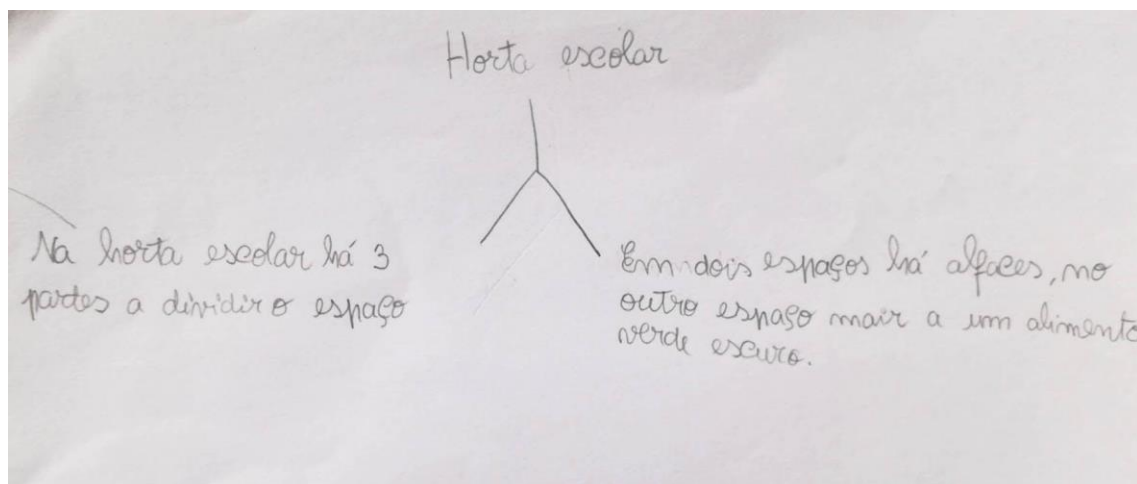 Horta escolar
Na horta escolar há 3
partes a dividir o espaço
Em dois espaços há alfaces, no
outro espaço mair a um alimento
verde escuro.